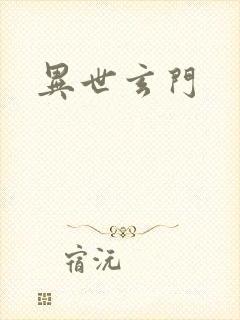 異世玄門
宿沅